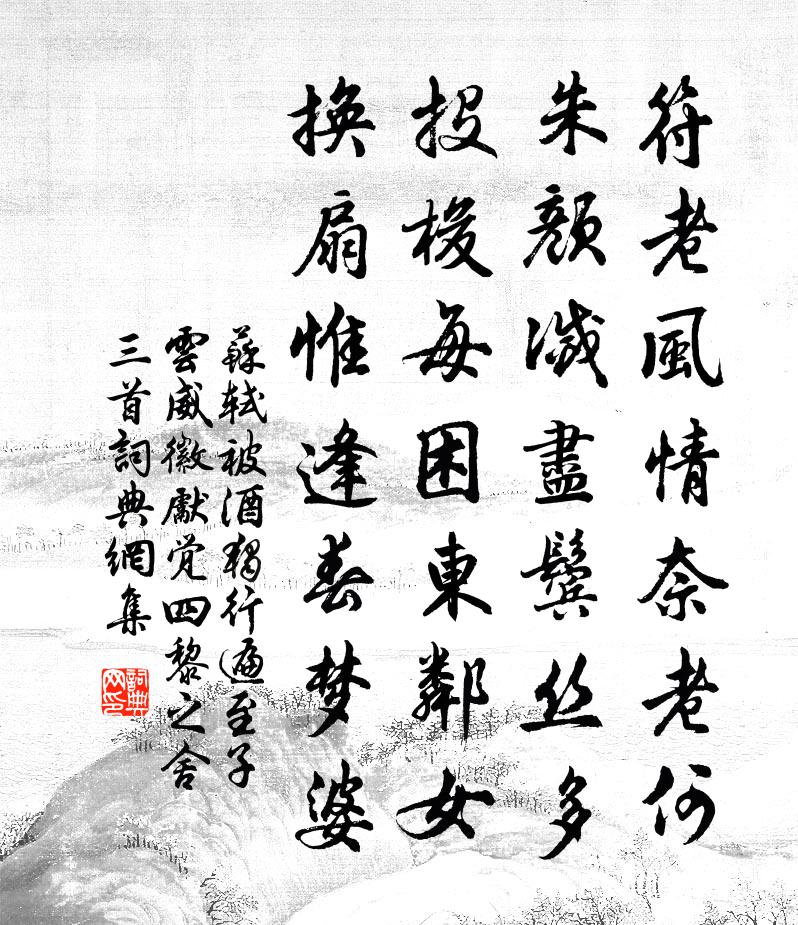 符老風情奈老何
朱顏減盡鬢丝多
投梭每困東鄰女
換扇惟逢春梦婆
蘇軾被酒獨行遍至子
雲威徽獻觉四黎之舍
三首詞典網集
詞典网印